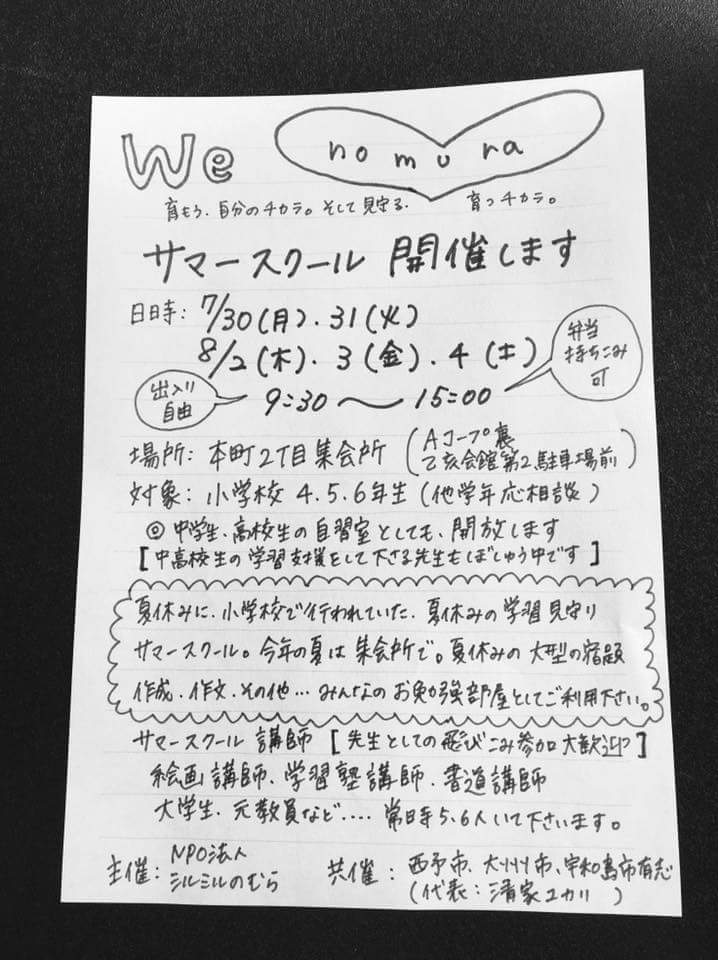 We nomura
育もう、自分のチカラ。そして見守る、育つチカラ。
サマースクール 開催します
日時: 7/30(月)・31(火)
8/2(木)・3(金)・4(土)
弁当
持ちこみ
可
出入り
自由
9:30 〜 15:00
場所: 本町2丁目集会所 (Aコープ裏
乙亥会館第2駐車場前)
対象: 小学校 4.5.6年生 (他学年応相談)
◎ 中学生、高校生の自習室としても、開放します
[中高校生の学習支援をして下さる先生もぼしゅう中です]
夏休みに、小学校で行われていた、夏休みの学習見守り
サマースクール。今年の夏は集会所で。夏休みの大型の宿題
作成、作文、その他… みんなのお勉強部屋としてご利用下さい。
サマースクール 講師 [先生としての飛びこみ参加大歓迎]
絵画講師、学習塾講師、書道講師
大学生、元教員など…. 常時5.6人いて下さいます。
主催: NPO法人
シルミルのむら
共催: 西予市、大洲市、宇和島市有志
(代表: 清家ユカリ)